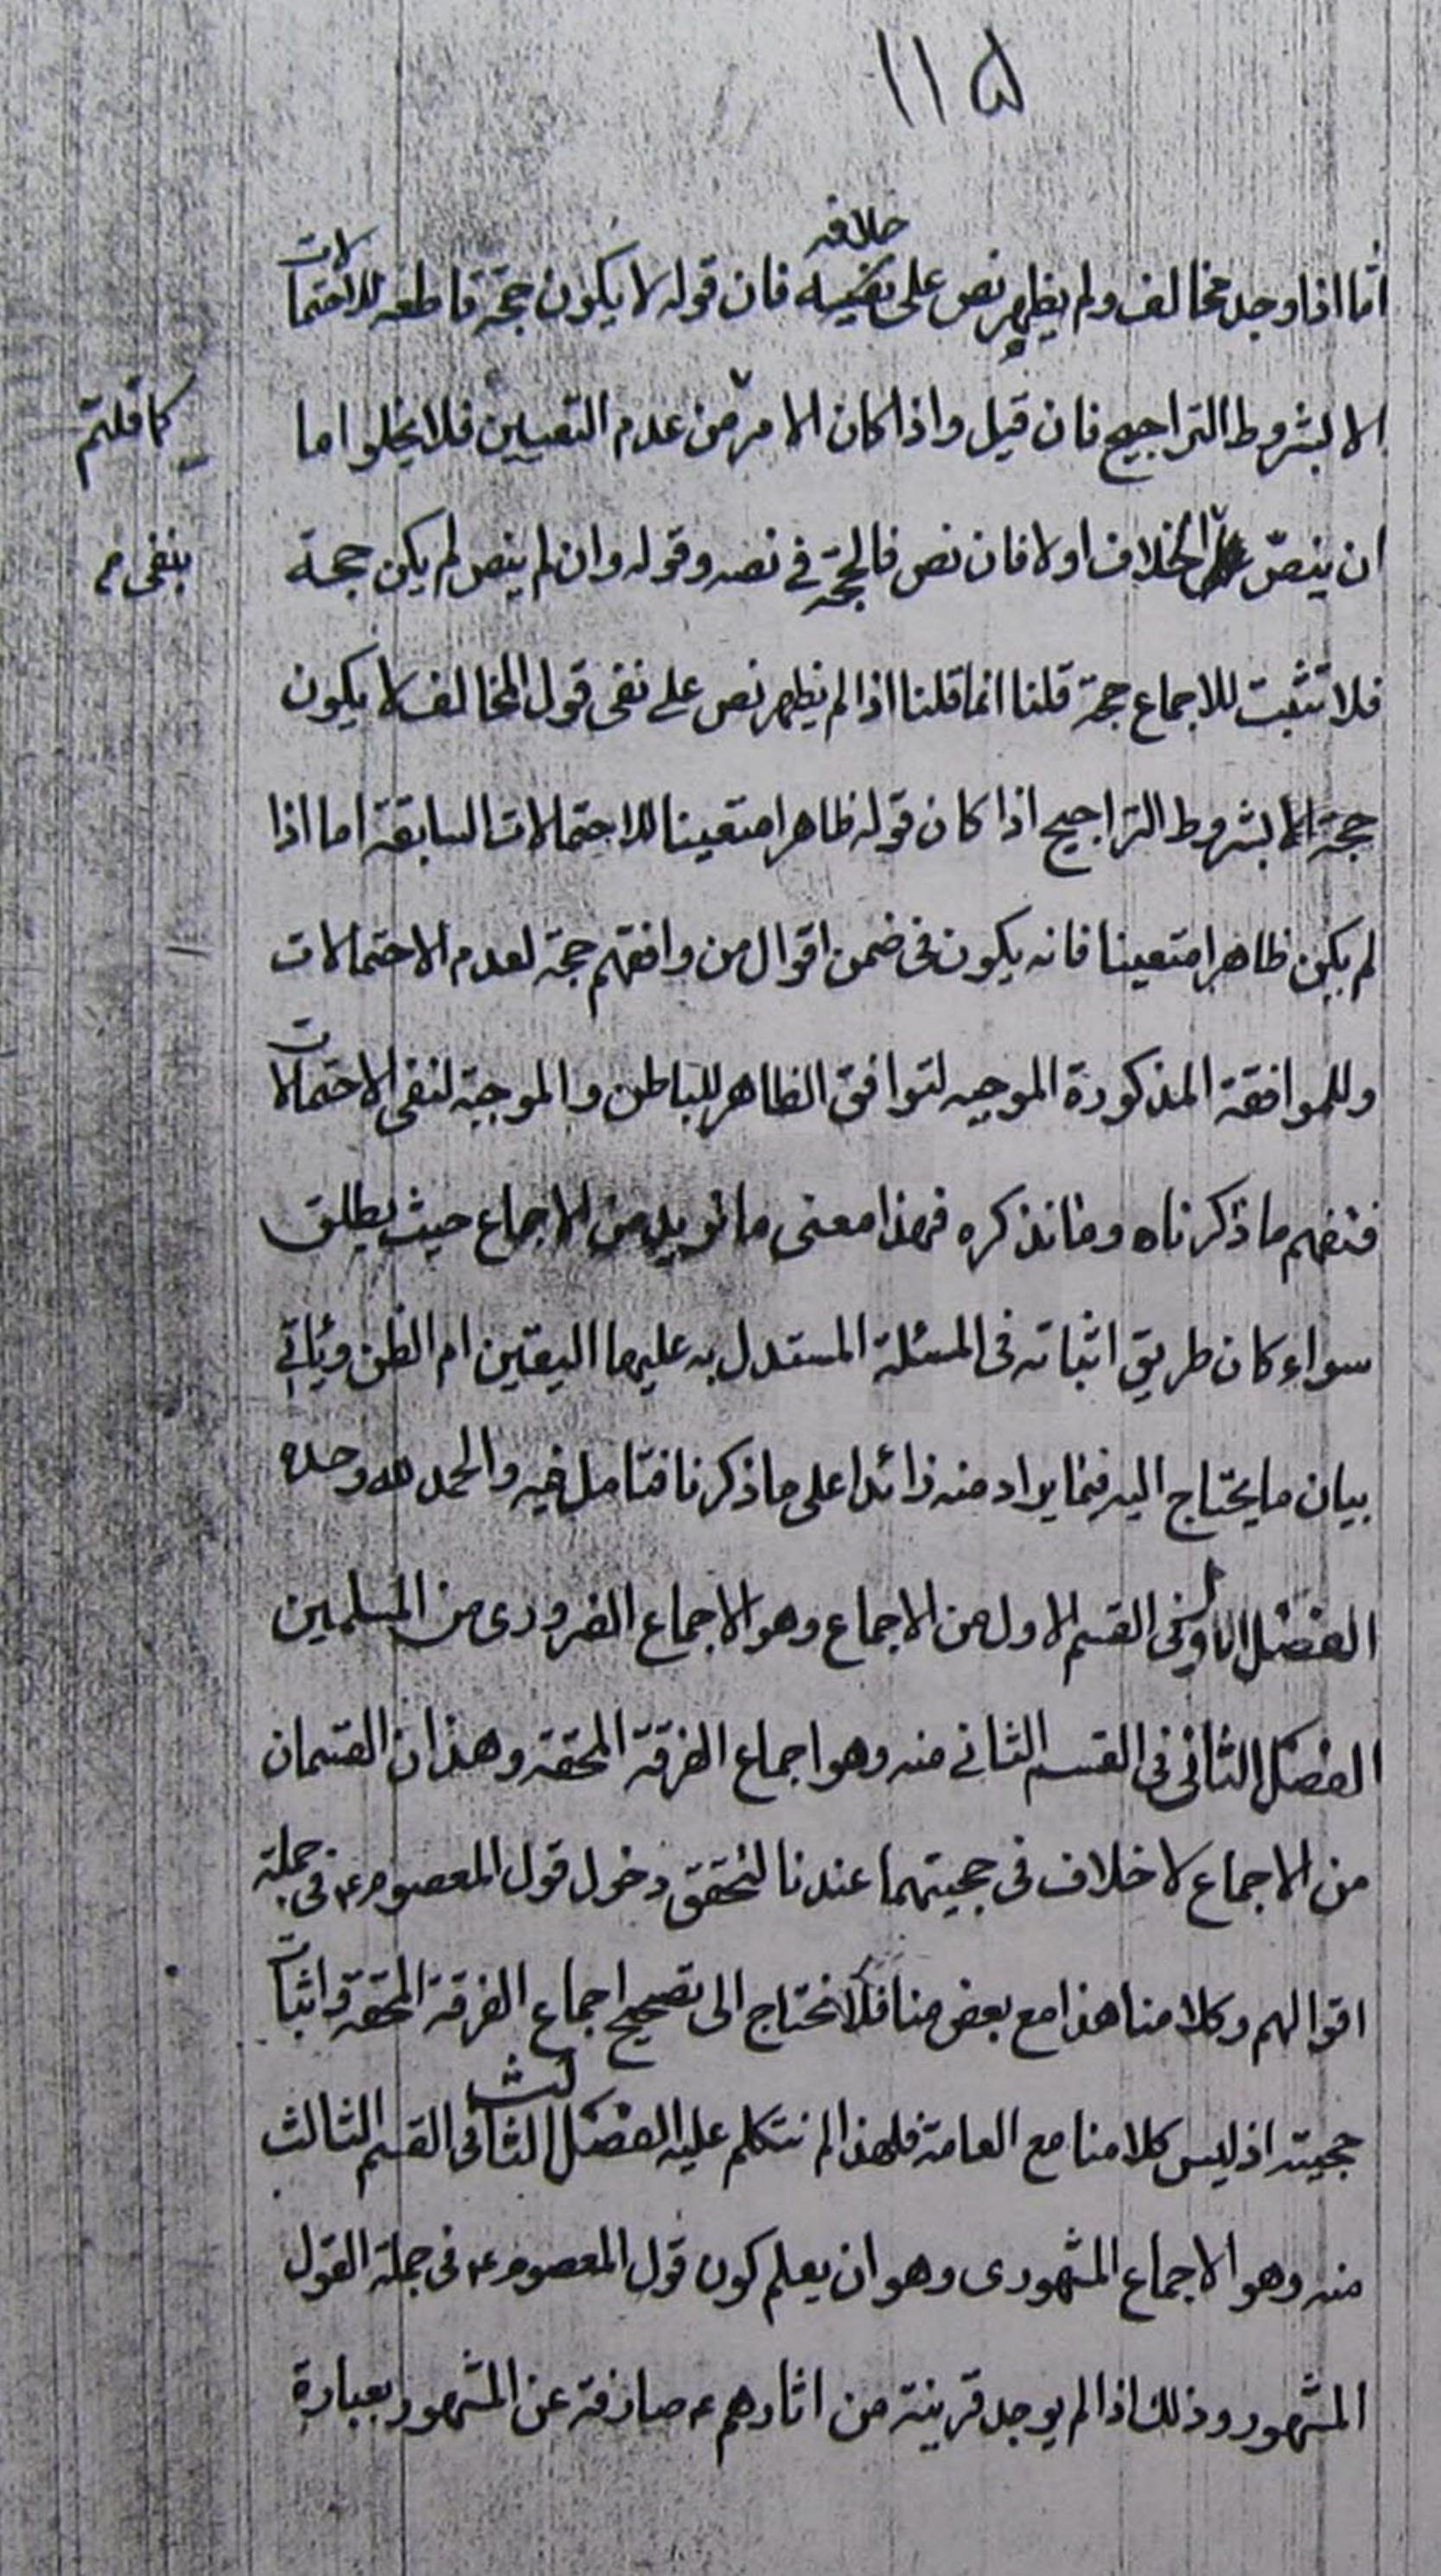 ١١۵
خلافه
أما اذا وجد مخالف ولم يظهر نص على نفيه فان قوله لا يكون حجة قاطعه للاحتمالات
الا بشروط التراجيح فان قيل واذا كان الامر من عدم التعيين فلا يخلوا اما
كما قلتم
ان ينصّ الخلاف اولا فان نص فالحجة في نصه وقوله وان لم ينص لم يكن حجة
بنفى
فلا تثبت للاجماع حجة قلنا انما قلنا اذا لم يظهر نص على نفى قول المخالف لا يكون
حجة الا بشروط التراجيح اذا كان قوله ظاهرا متعينا للاحتمالات السابقة اما اذا
لم يكن ظاهرا متعينا فانه يكون فى ضمن اقوال من وافقهم حجة لعدم الاحتمالات
وللموافقة المذكورة الموجبه لتوافق الظاهر للباطن والموجبة لنفى الاحتمالات
فتفهم ما ذكرناه وما نذكره فهذا معنى ما نريد من الاجماع حيث يطلق
سواء كان طريق اثباته فى المسئلة المستدل به عليها اليقين ام الظن ويأتي
بيان ما يحتاج اليه فيما يراد منه زائدا على ما ذكرنا فتامل فيه والحمد لله وحده
الفصل الاول فى القسم الاول من الاجماع وهو الاجماع الضرورى من المسلمين
الفصل الثانى فى القسم الثاني منه وهو اجماع الفرقة المحقة وهذان القسمان
من الاجماع لا خلاف فى حجيتهما عندنا لتحقق دخول قول المعصوم ع فى جملة
اقوالهم وكلامنا هذا مع بعض منا فلا نحتاج الى تصحيح اجماع الفرقة المحقة واثبات
حجيته اذ ليس كلامنا مع العامة فلهذا لم نتكلم عليه الفصل الثالث فى القسم الثالث
منه وهو الاجماع المشهورى وهو ان يعلم كون قول المعصوم ع فى جملة القول
المشهور وذلك اذا لم يوجد قرينة من اثارهم ع صارفة عن المشهور بعبارة